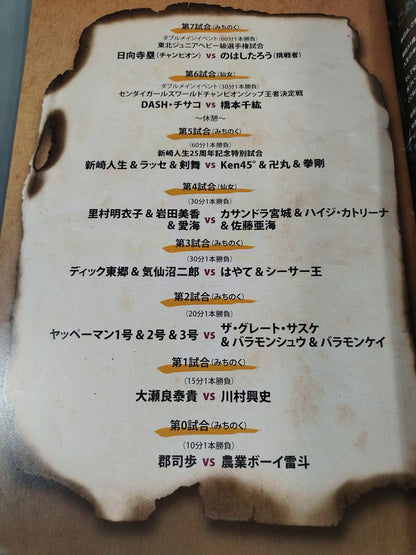 第7試合(みちのく)
ダブルメインイベント(60分1本勝負)
東北ジュニアヘビー級選手権試合
日向寺塁(チャンピオン) vs のはしたろう(挑戦者)
第6試合(仙女)
ダブルメインイベント(30分1本勝負)
センダイガールズワールドチャンピオンシップ王者決定戦
DASH・チサコ vs 橋本千紘
〜休憩〜
第5試合(みちのく)
(60分1本勝負)
新崎人生25周年記念特別試合
新崎人生&ラッセ&剣舞 vs Ken45°&卍丸&拳剛
第4試合(仙女)
(30分1本勝負)
里村明衣子&岩田美香&愛海 vs カサンドラ宮城&ハイジ・カトリーナ&佐藤亜海
第3試合(みちのく)
(30分1本勝負)
ディック東郷&気仙沼二郎 vs はやて&シーサー王
第2試合(みちのく)
(20分1本勝負)
ヤッペーマン1号&2号&3号 vs ザ・グレート・サスケ&バラモンシュウ&バラモンケイ
第1試合(みちのく)
(15分1本勝負)
大瀬良泰貴 vs 川村興史
第0試合(みちのく)
(10分1本勝負)
郡司歩 vs 農業ボーイ雷斗